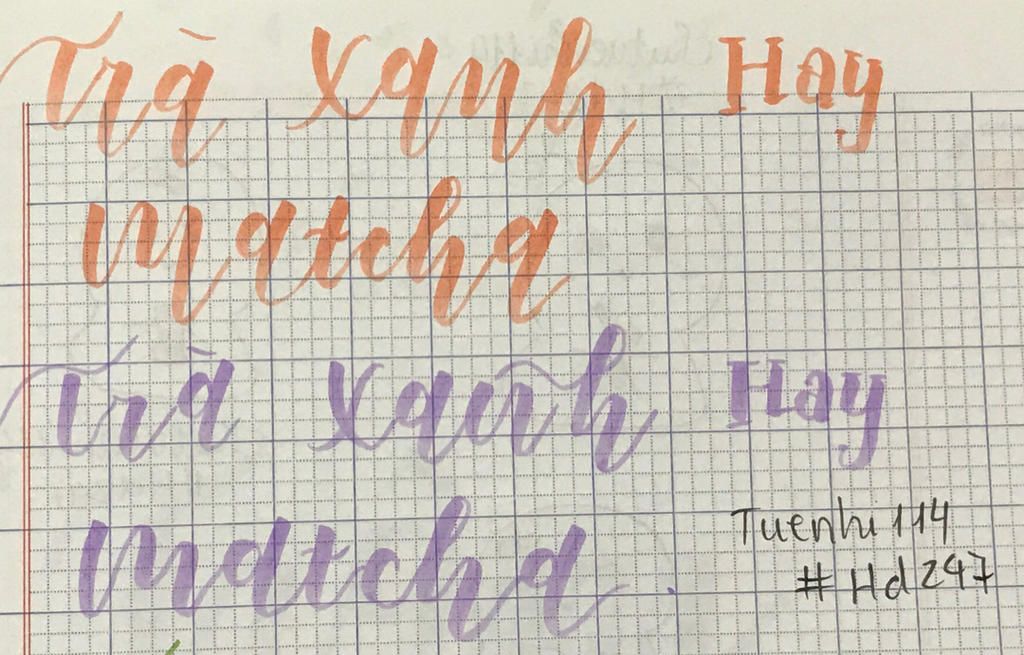 Trà xanh Hay
matcha
Trà xanh Hay
matcha.
Tuenhi 114
# Hd 247